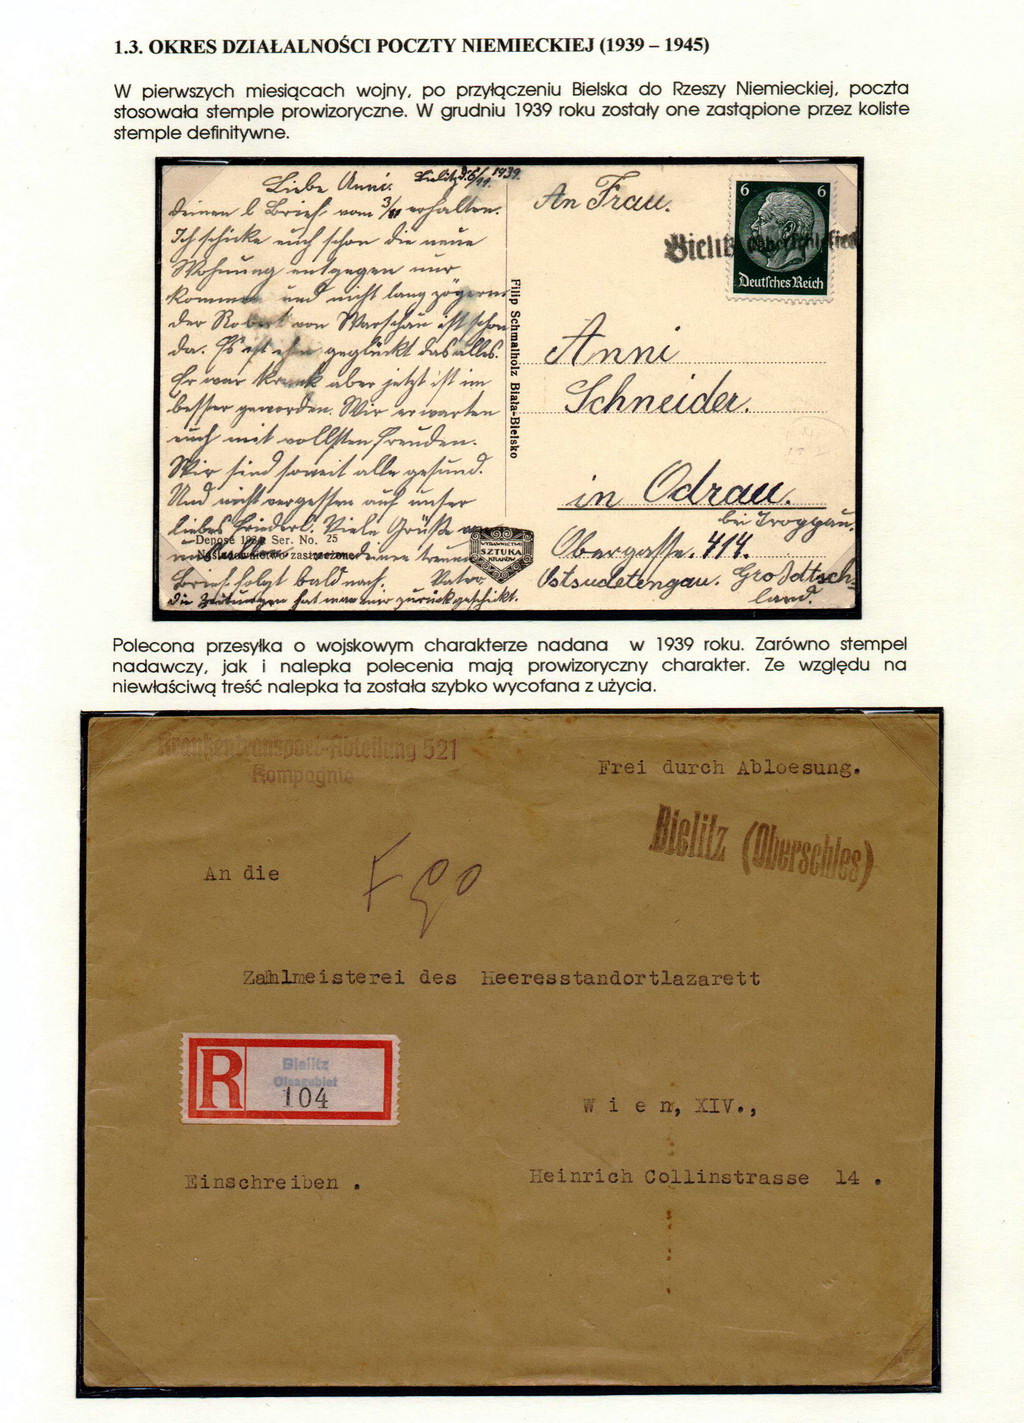 1.3. OKRES DZIAŁALNOŚCI POCZTY NIEMIECKIEJ (1939 – 1945)
W pierwszych miesiącach wojny, po przyłączeniu Bielska do Rzeszy Niemieckiej, poczta
stosowała stemple prowizoryczne. W grudniu 1939 roku zostały one zastąpione przez koliste
stemple definitywne.
Bielitz, d. 6/11. 1939.
Liebe Anni.
Deinen l. Brief vom 3/11 erhalten.
Ich schicke euch schon die neue
Wohnung entgegen nur
kommen und nicht lang zögern
der Robert von Warschau ist schon
da. Es ist ihm geglückt das alles.
Er war krank aber jetzt ist im
besser geworden. Wir erwarten
euch mit vollsten Freuden.
Wir sind soweit alle gesund.
Und nicht vergessen auf unser
liebes Friederl. Viele Grüße
Deposé 1939 Ser. No. 25
zastrzeżone
deine treuen
Brief folgt bald nach. Vater
Die Zeitungen hat man mir zurückgeschickt.
Filip Schmalholz Biala-Bielsko
WYDAWNICTWO
SZTUKA
KRAKÓW
An Frau.
6 6
Deutsches Reich
Bielitz
Anni
Schneider.
in Odrau.
bei Troppau.
Obergasse. 414.
Ostsudetengau. Großdtsch-
land.
Polecona przesyłka o wojskowym charakterze nadana w 1939 roku. Zarówno stempel
nadawczy, jak i nalepka polecenia mają prowizoryczny charakter. Ze względu na
niewłaściwą treść nalepka ta została szybko wycofana z użycia.
Krankentransport-Abteilung 521
Kompagnie
Frei durch Abloesung.
Bielitz (Oberschles)
An die
Zahlmeisterei des Heeresstandortlazarett
R
Bielitz
Olsagebiet
104
Wien, XIV.,
Einschreiben .
Heinrich Collinstrasse 14 .